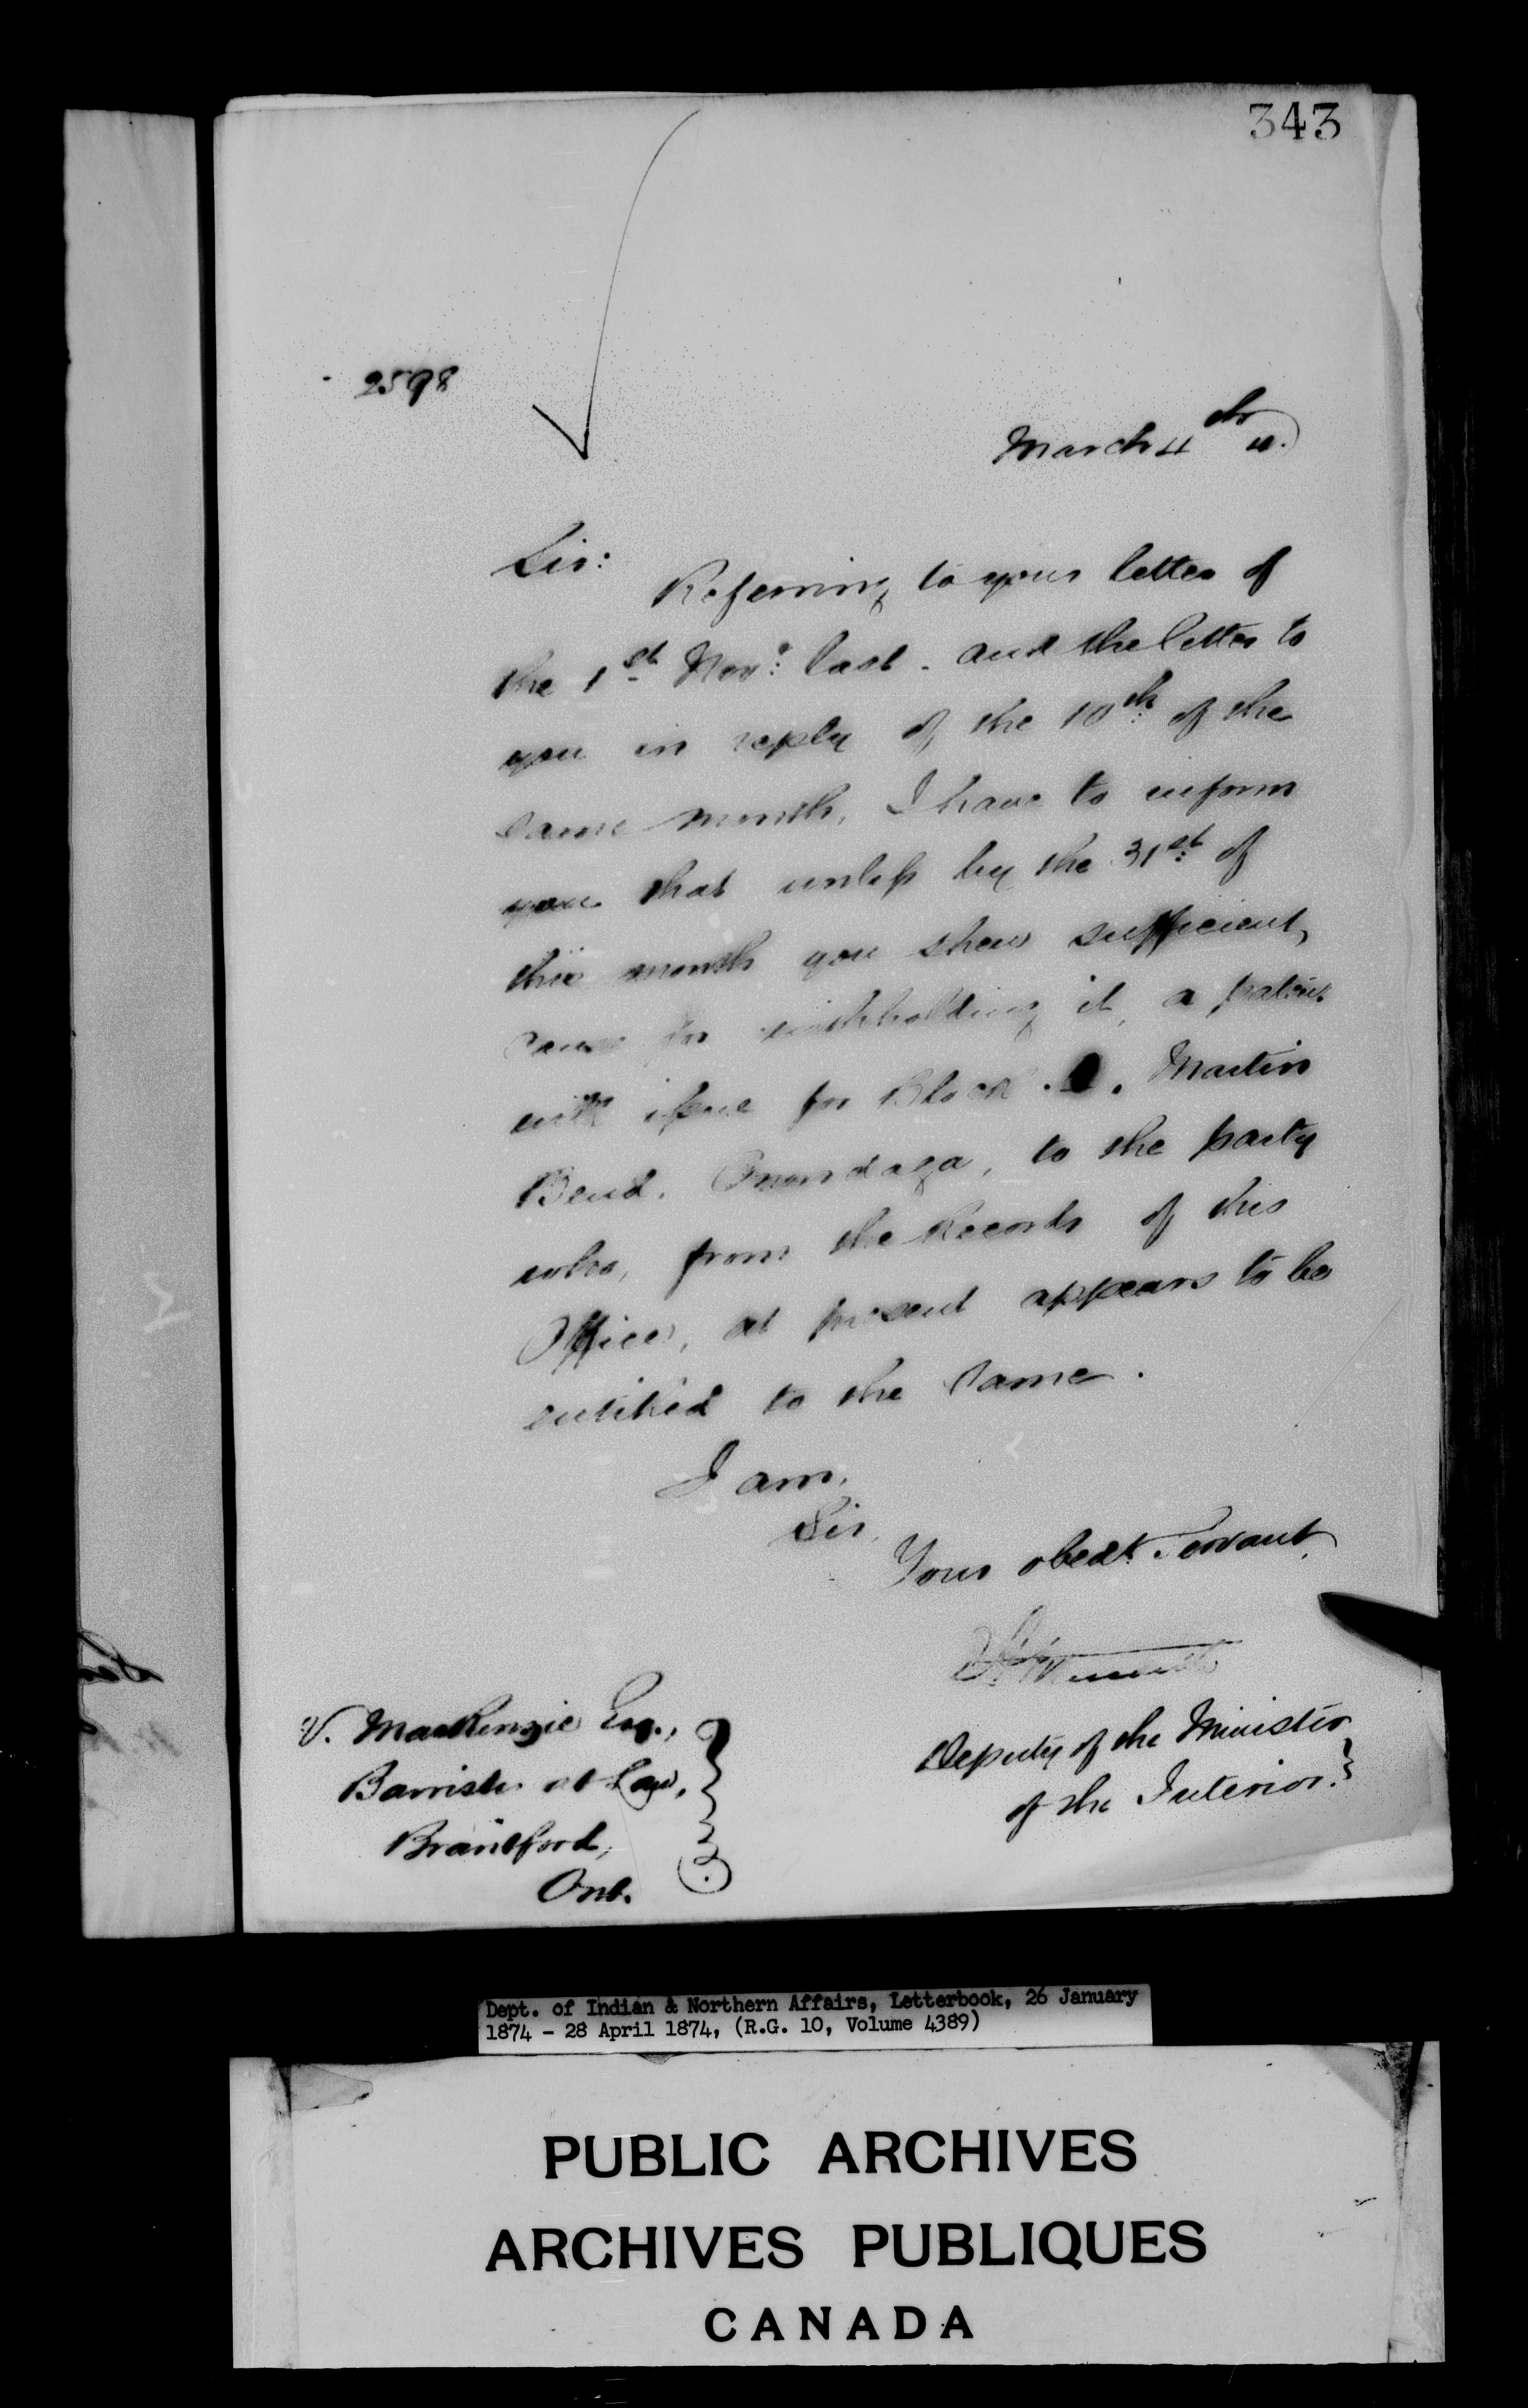 343
2598
March 4th
Sir:
Referring to your letter of
the 1st Novr: last. and the letter to
you in reply of the 10th: of the
same month, I have to inform
you that unless by the 31st: of
this month you shew sufficient
cause for withholding it, a patent
will issue for Block Martin
Bend. Onondaga, to the party
who, from the Records of this
Office, at present appears to be
entitled to the same.
I am,
Sir,
Your obedt. Servant,
Deputy of the Minister
of the Interior.
V. MacKenzie Esq.,
Barrister at Law,
Brantford,
Ont.
Dept. of Indian & Northern Affairs, Letterbook, 26 January
1874 - 28 April 1874, (R.G. 10, Volume 4389)
PUBLIC ARCHIVES
ARCHIVES PUBLIQUES
CANADA